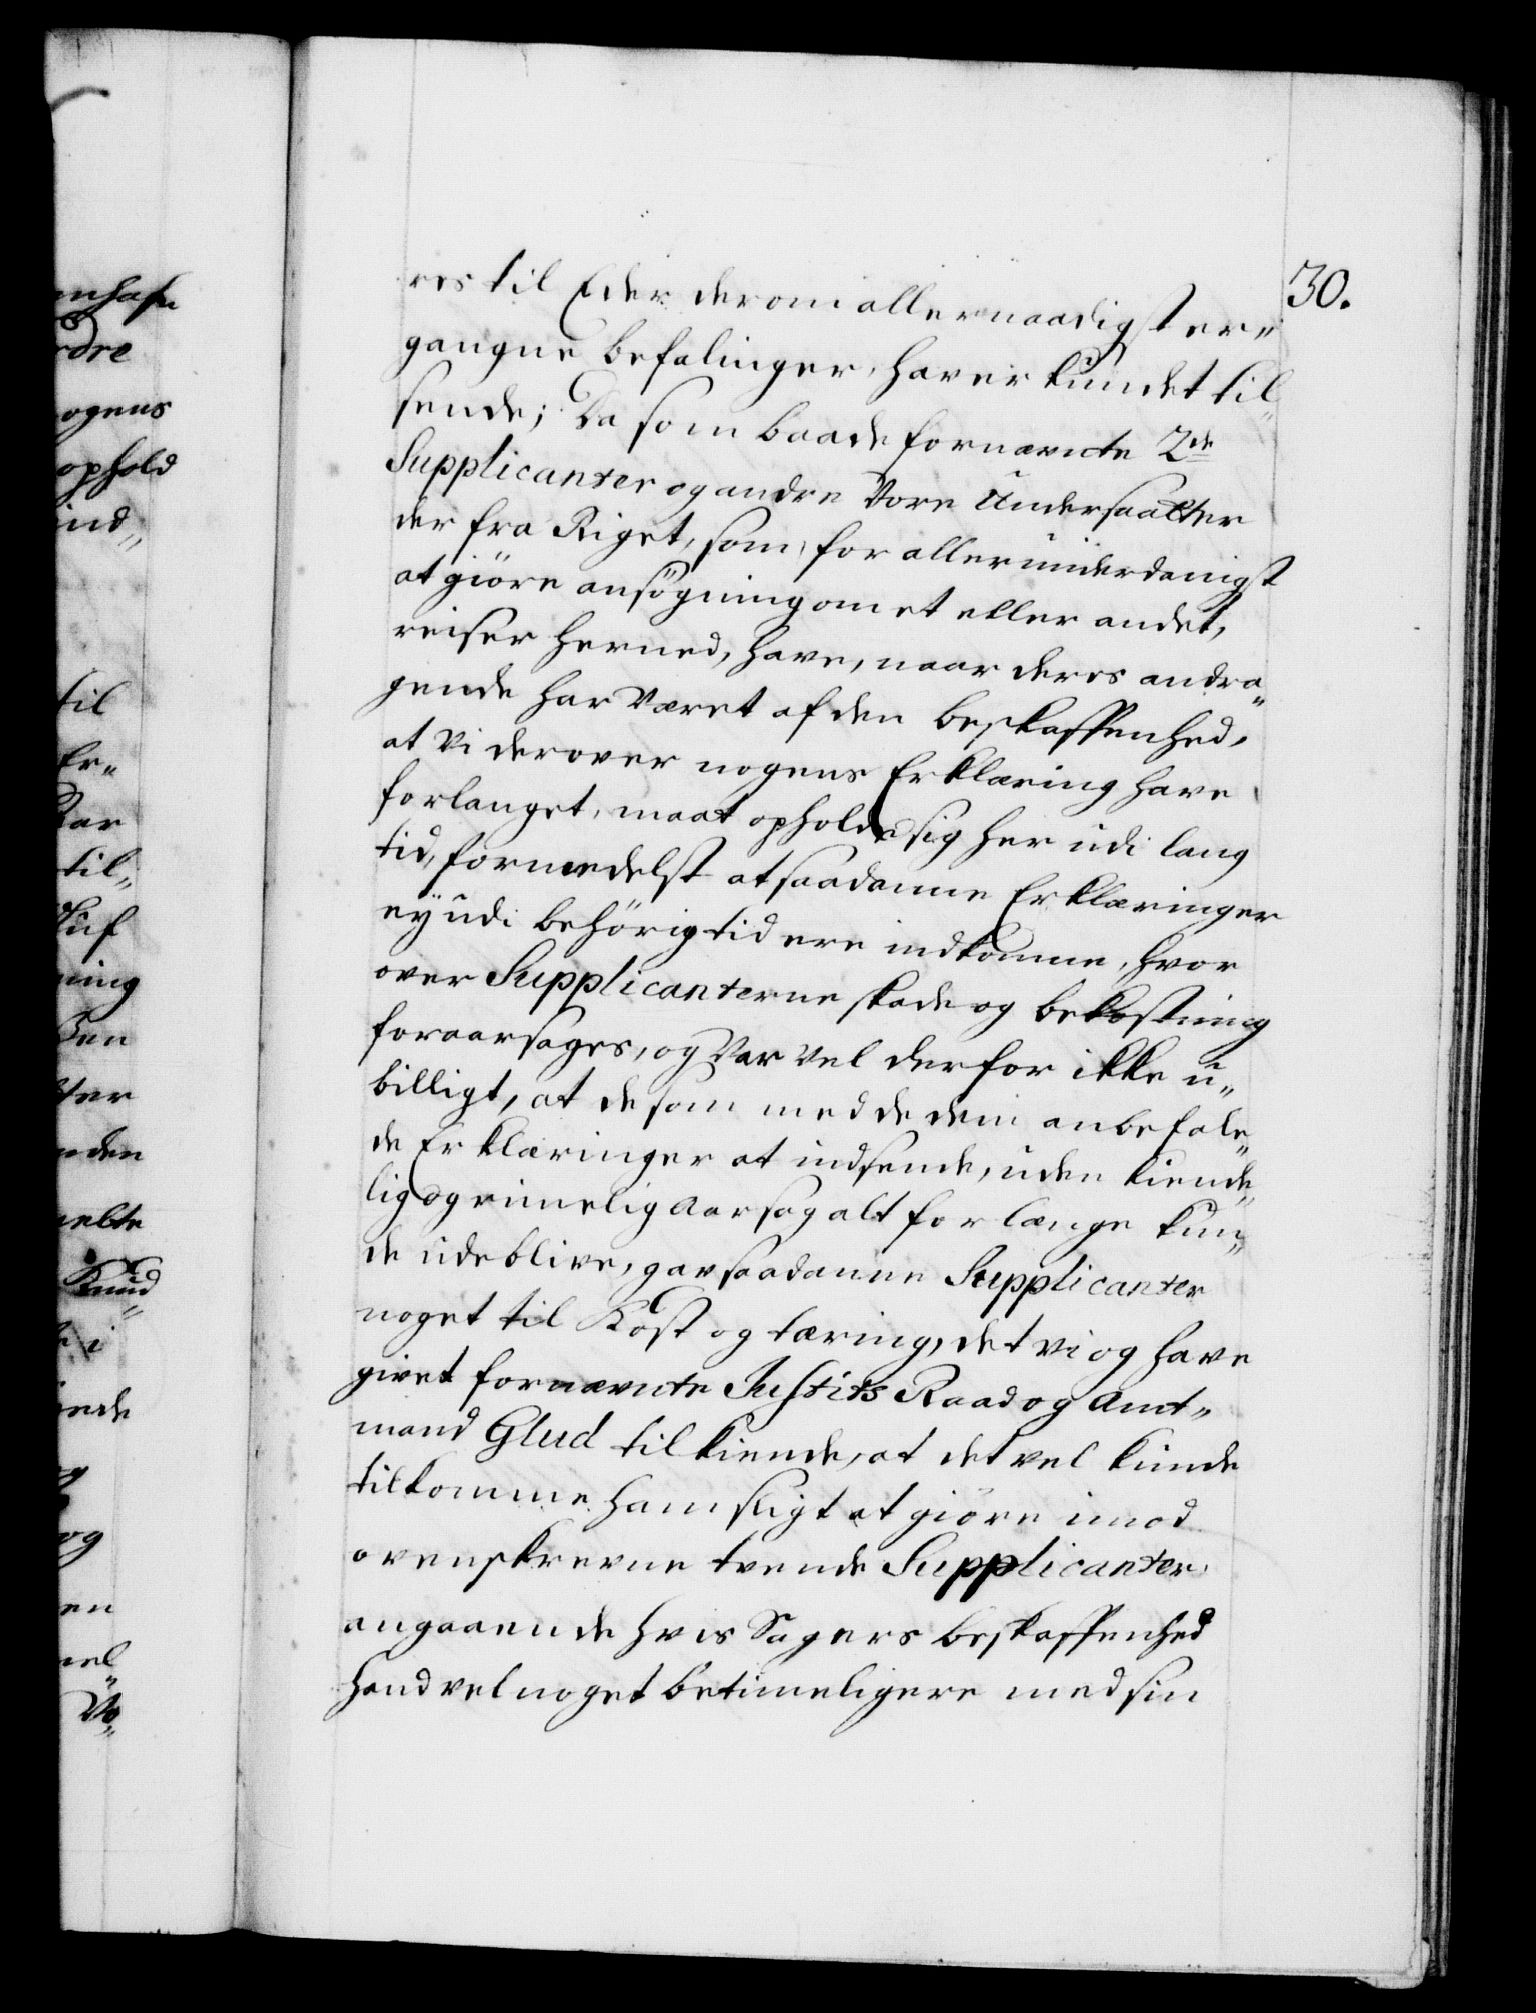 30.
res til Eder derom allernaadigst er„
gangne befalinger, haver kundet til„
sende; Da som baade fornævnte 2de
Supplicanter og andre Vore Undersaatter
der fra Riget, som, for allerunderdanigst
at giöre ansögning om et eller andet,
reiser herned, have, naar deres andra„
gende har Været af den beskaffenhed,
at Vi derover nogens Erklæring have
forlanget, maat opholde sig her udi lang
tid, formedelst at saadanne Erklæringer
ey udi behörig tid ere indkomne, hvor
over Supplicanterne skade og bekostning
foraarsages, og Var vel derfor ikke u„
billigt, at de som med de dem anbefale„
de Erklæringer at indsende, uden kiende„
lig og rimelig Aarsag alt for længe kun„
de udeblive, gav saadanne Supplicanter
noget til Kost og tæring, det vi og have
givet fornævnte Justits Raad og Amt„
mand Glud tilkiende, at det vel kunde
tilkomme ham sligt at giöre imod
ovenskrevne tvende Supplicanter,
angaaende hvis Sagers beskaffenhed
hand vel noget betimeligere med sin